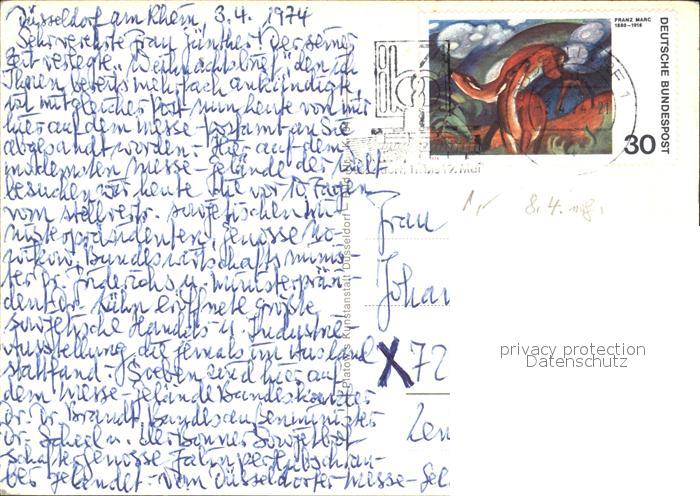 Düsseldorf am Rhein, 3.4. 1974
Sehr verehrte Frau Günther! Der seiner
Zeit verlegte „Weihnachtsbrief", den ich
Ihnen bereits mehrfach ankündigte,
ist mit gleicher Post nun heute von mir
hier auf dem Messe-Postamt an Sie
abgesandt worden. Hier auf dem
modernsten Messe-Gelände der Welt
besuchen wir heute die vor 10 Tagen
vom stellvertr. sowjetischen Mi-
nisterpräsidenten, Genosse No-
wikow, Bundeswirtschaftsminis-
ter Dr. Friderichs u. Ministerpräsi-
dent Dr. Kühn eröffnete größte
sowjetische Handels- u. Industrie-
Ausstellung, die jemals im Ausland
stattfand. Soeben sind hier auf
dem Messe-Gelände Bundeskanzler
Dr. Brandt, Bundesaußenminister
Dr. Scheel u. der Bonner Sowjetbot-
schafter Genosse Falin per Hubschrau-
ber gelandet. Vom Düsseldorfer Messe-Gel
FRANZ MARC
1880-1916
DEUTSCHE BUNDESPOST
30
1,- 8.4.
Frau
Johan
X 72
Kunstanstalt Düsseldorf
privacy protection
Datenschutz